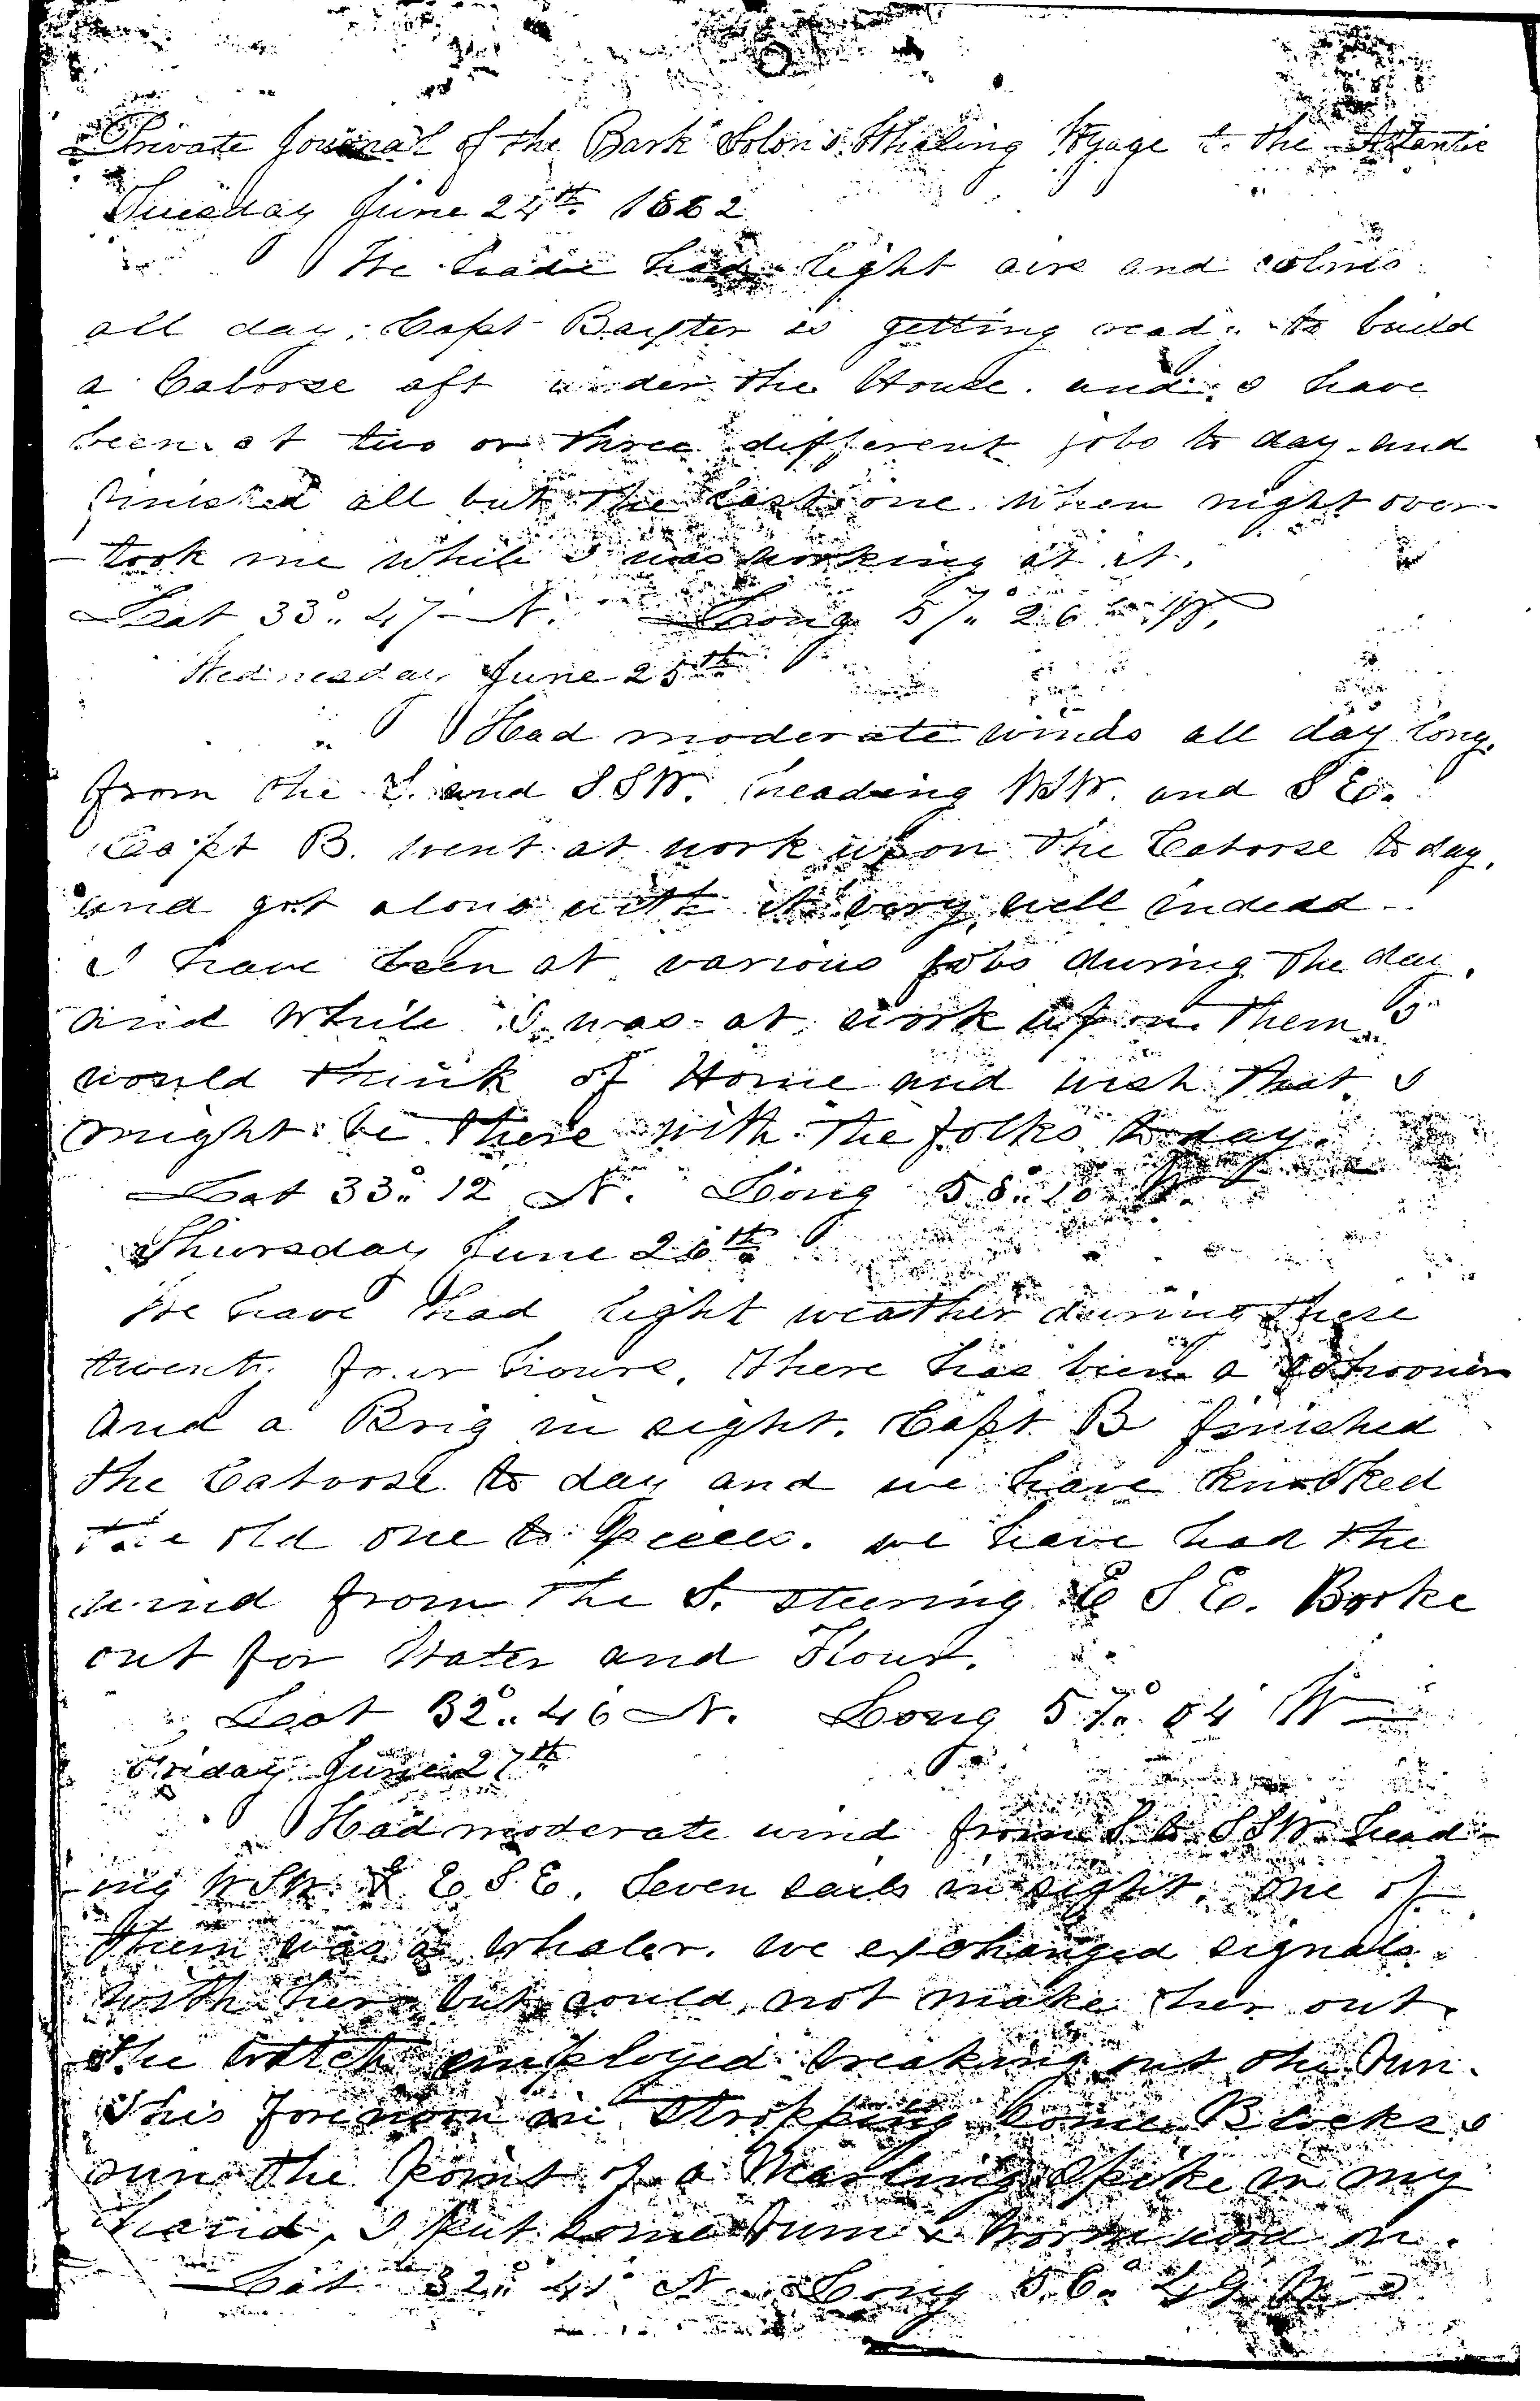 Private Journal of the Bark Solon's Whaling Voyage to the Atlantic
Tuesday June 24th 1862
We have had light airs and calms
all day. Capt Baxter is getting ready to build
a Caboose aft under the House. and I have
been at two or three different jobs to day. and
finished all but the last one. when night over-
-took me while I was working at it.
Lat 33°.. 47 N. Long 57°.. 26 W.
Wednesday June 25th
Had moderate winds all day long.
from the S. and S.S.W. heading W.S.W. and S E.
Capt B. went at work upon the Caboose to day.
and got along with it very well indeed.
I have been at various jobs during the day.
and while I was at work upon them I
would think of Home and wish that I
might be there with the folks to day.
Lat 33°.. 12 N. Long 58°.. 10 W
Thursday June 26th
We have had light weather during these
twenty four hours, there has been a schooner
and a Brig in sight. Capt. B finished
the Caboose to day and we have knocked
the old one to Pieces. we have had the
wind from the S. steering E S E. Broke
out for Water and Flour.
Lat 32°.. 46 N. Long 57°.. 04' W
Friday June 27th
Had moderate wind from S to S S W. head-
-ing W S W. & E S E. Seven sails in sight, one of
them was a whaler. we exchanged signals
with her but could not make her out.
The watch employed breaking out the run.
This forenoon in Stropping some Blocks I
run the point of a Marling Spike in my
hand, I put some rum & wormwood on.
Lat 32°.. 41' N. Long 56°.. 49 W